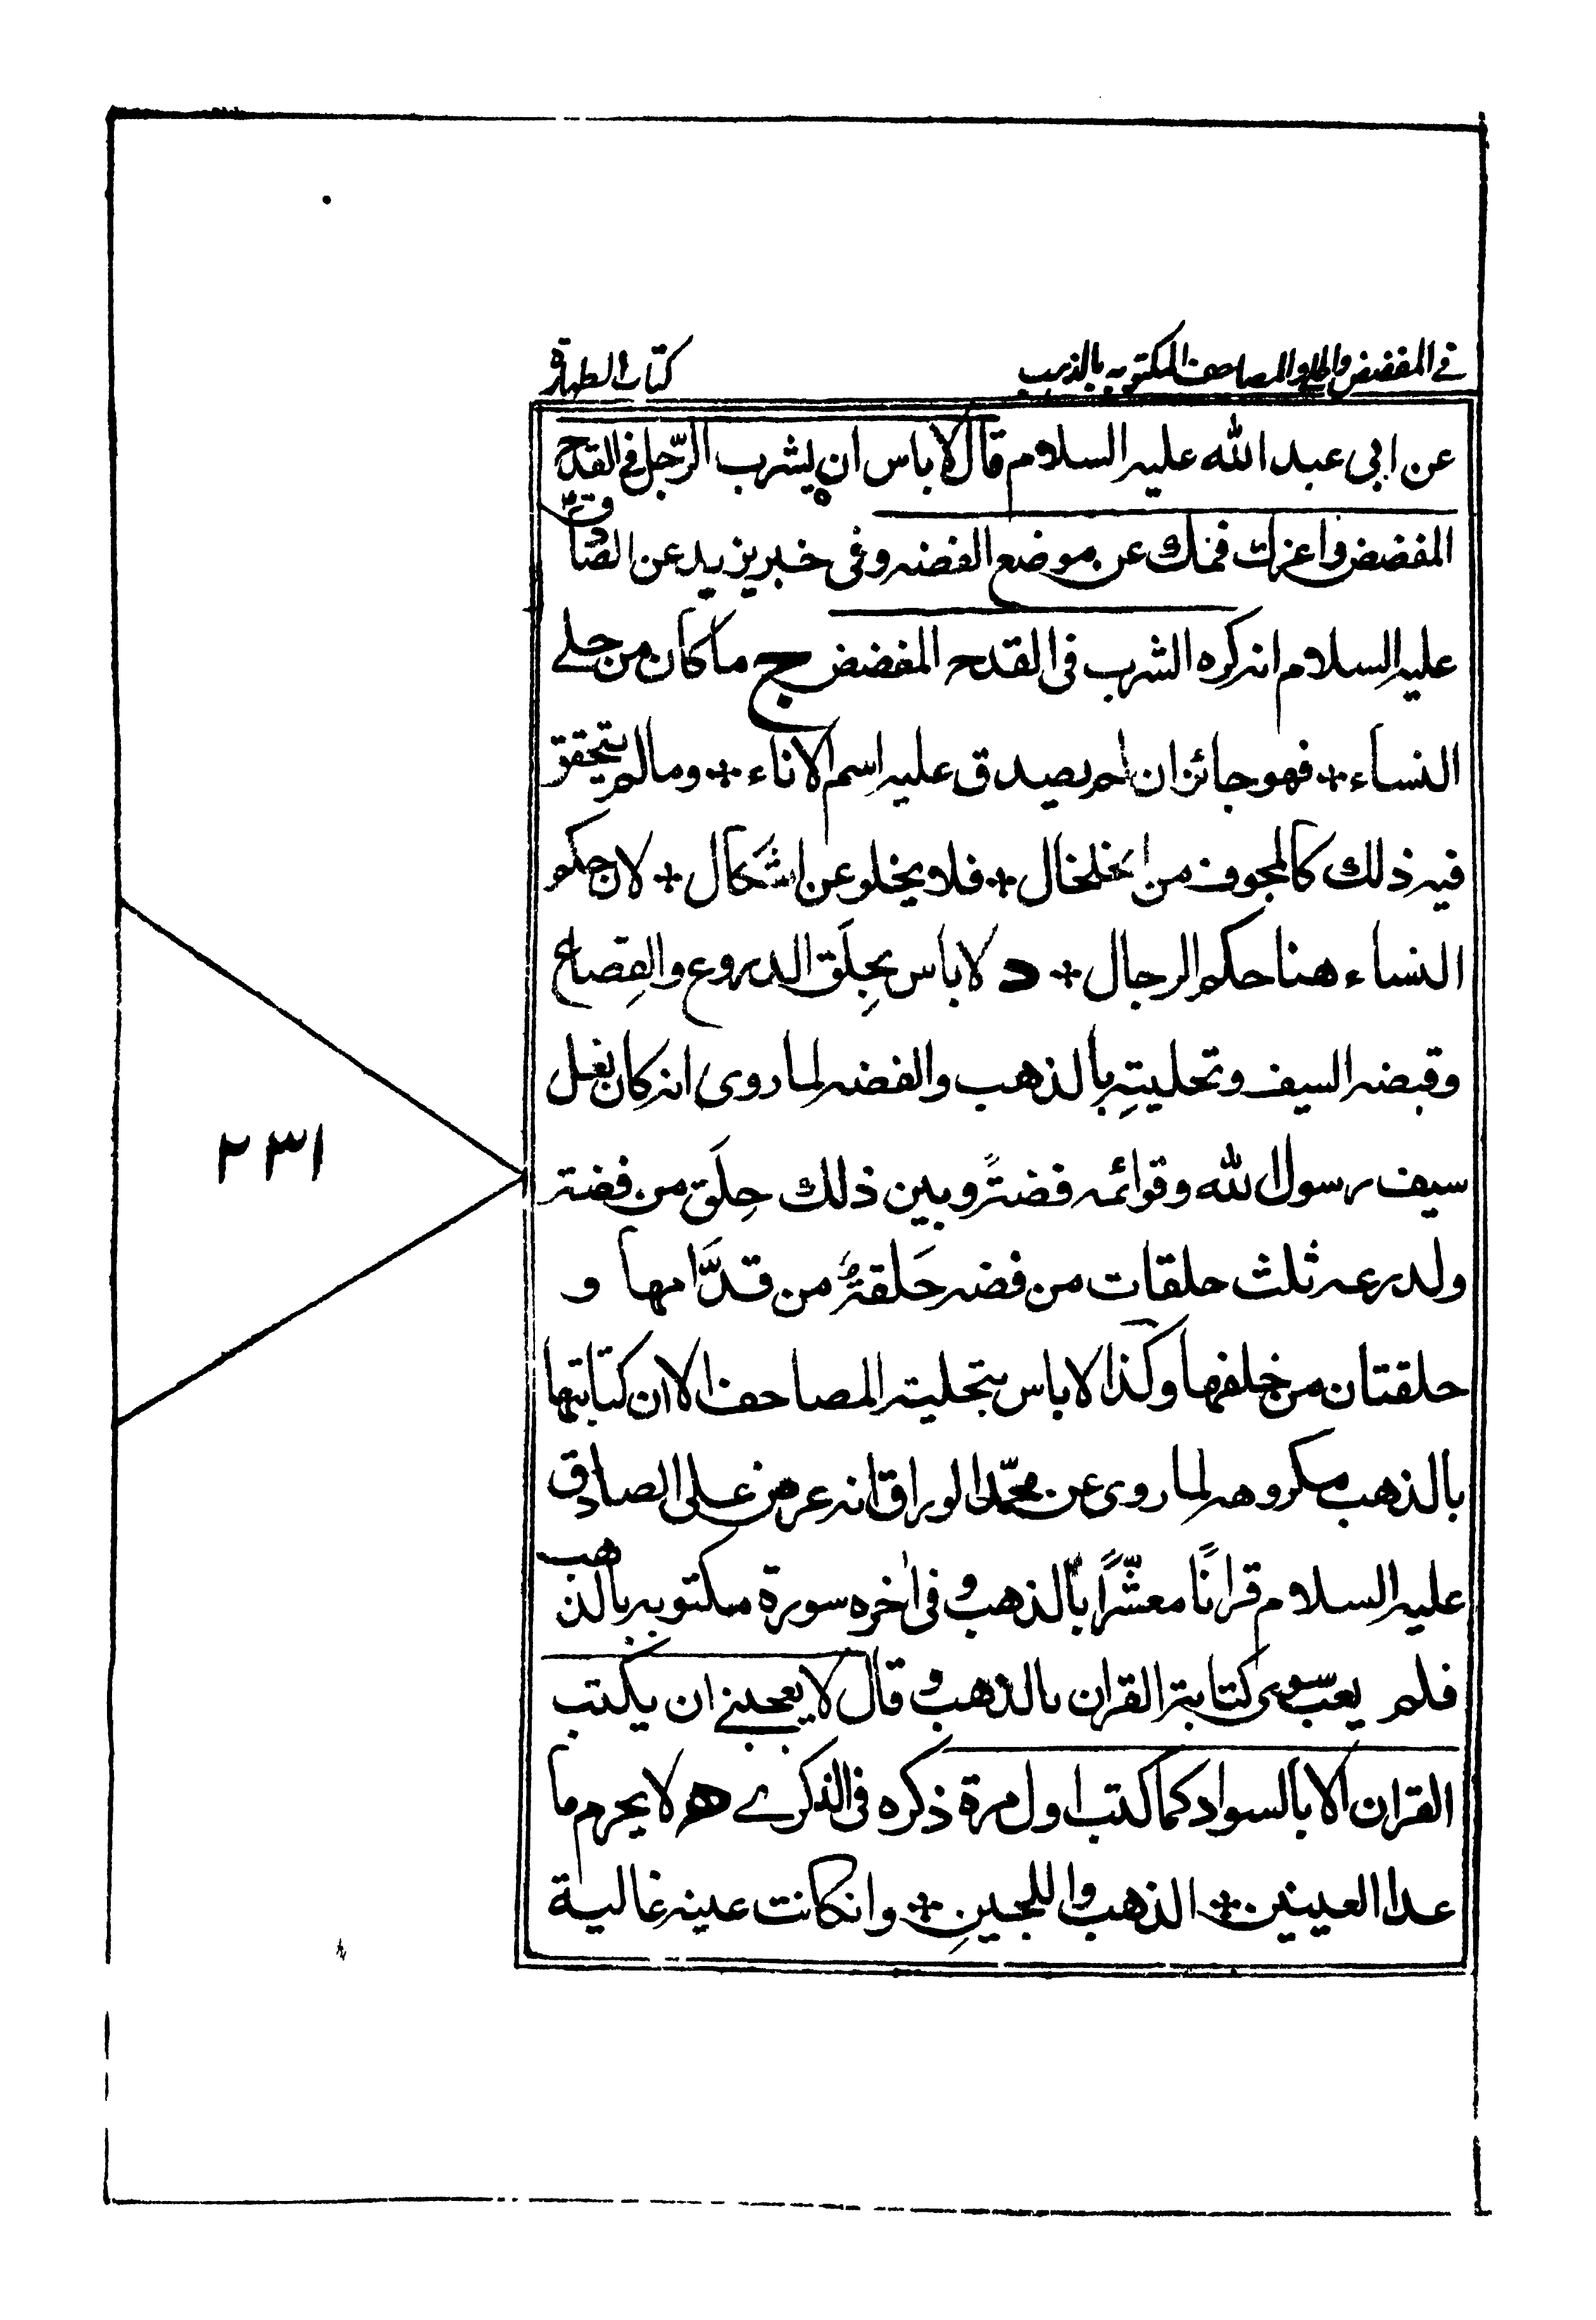 في المفضض والحلي والمصاحف المكتوبه بالذهب
كتاب الطهارة
عن ابي عبد الله عليه السلام قال لا باس ان يشرب الرّجل في القدح
المفضض واعزل فمك عن موضع الفضه وفي خبر يزيد عن الصّادق
عليه السلام انه كره الشرب في القدح المفضض ج ما كان من حلے
النساء ÷ فهو جائز ان لم يصدق عليه اسم الاناء ÷ وما لم يتحقق
فيه ذلك كالمجوف من الخلخال ÷ فلا يخلو عن اشكال ÷ لان حكم
النساء هنا حكم الرجال ÷ د لا باس بحِلَق الدروع والقِصاع
وقبضه السيف وتحليتِه بالذهب والفضه لما روى انه كان نعل
سيف رسول الله وقوائمه فضةً وبين ذلك حِلَق من فضة
ولدرعه ثلث حلقات من فضه حَلقةٌ من قدَّامها و
حلقتان من خلفها وكذا لا باس بتحلية المصاحف الا ان كتابتها
بالذهب مكروهه لما روى عن محمّد الوراق انه عرض على الصادق
عليه السلام قرانًا معشّرًا بالذهب وفي اٰخره سورة مكتوبه بالذهب
فلم يعب سوى كتابة القران بالذهب و قال لا يعجبنے ان يكتب
القران الا بالسواد كما كتب اول مرة ذكره في الذكرے ه لا يحرم ما
عدا العينين ÷ الذهب واللجينِ ÷ وانكانت عينه غالية
٢٣١